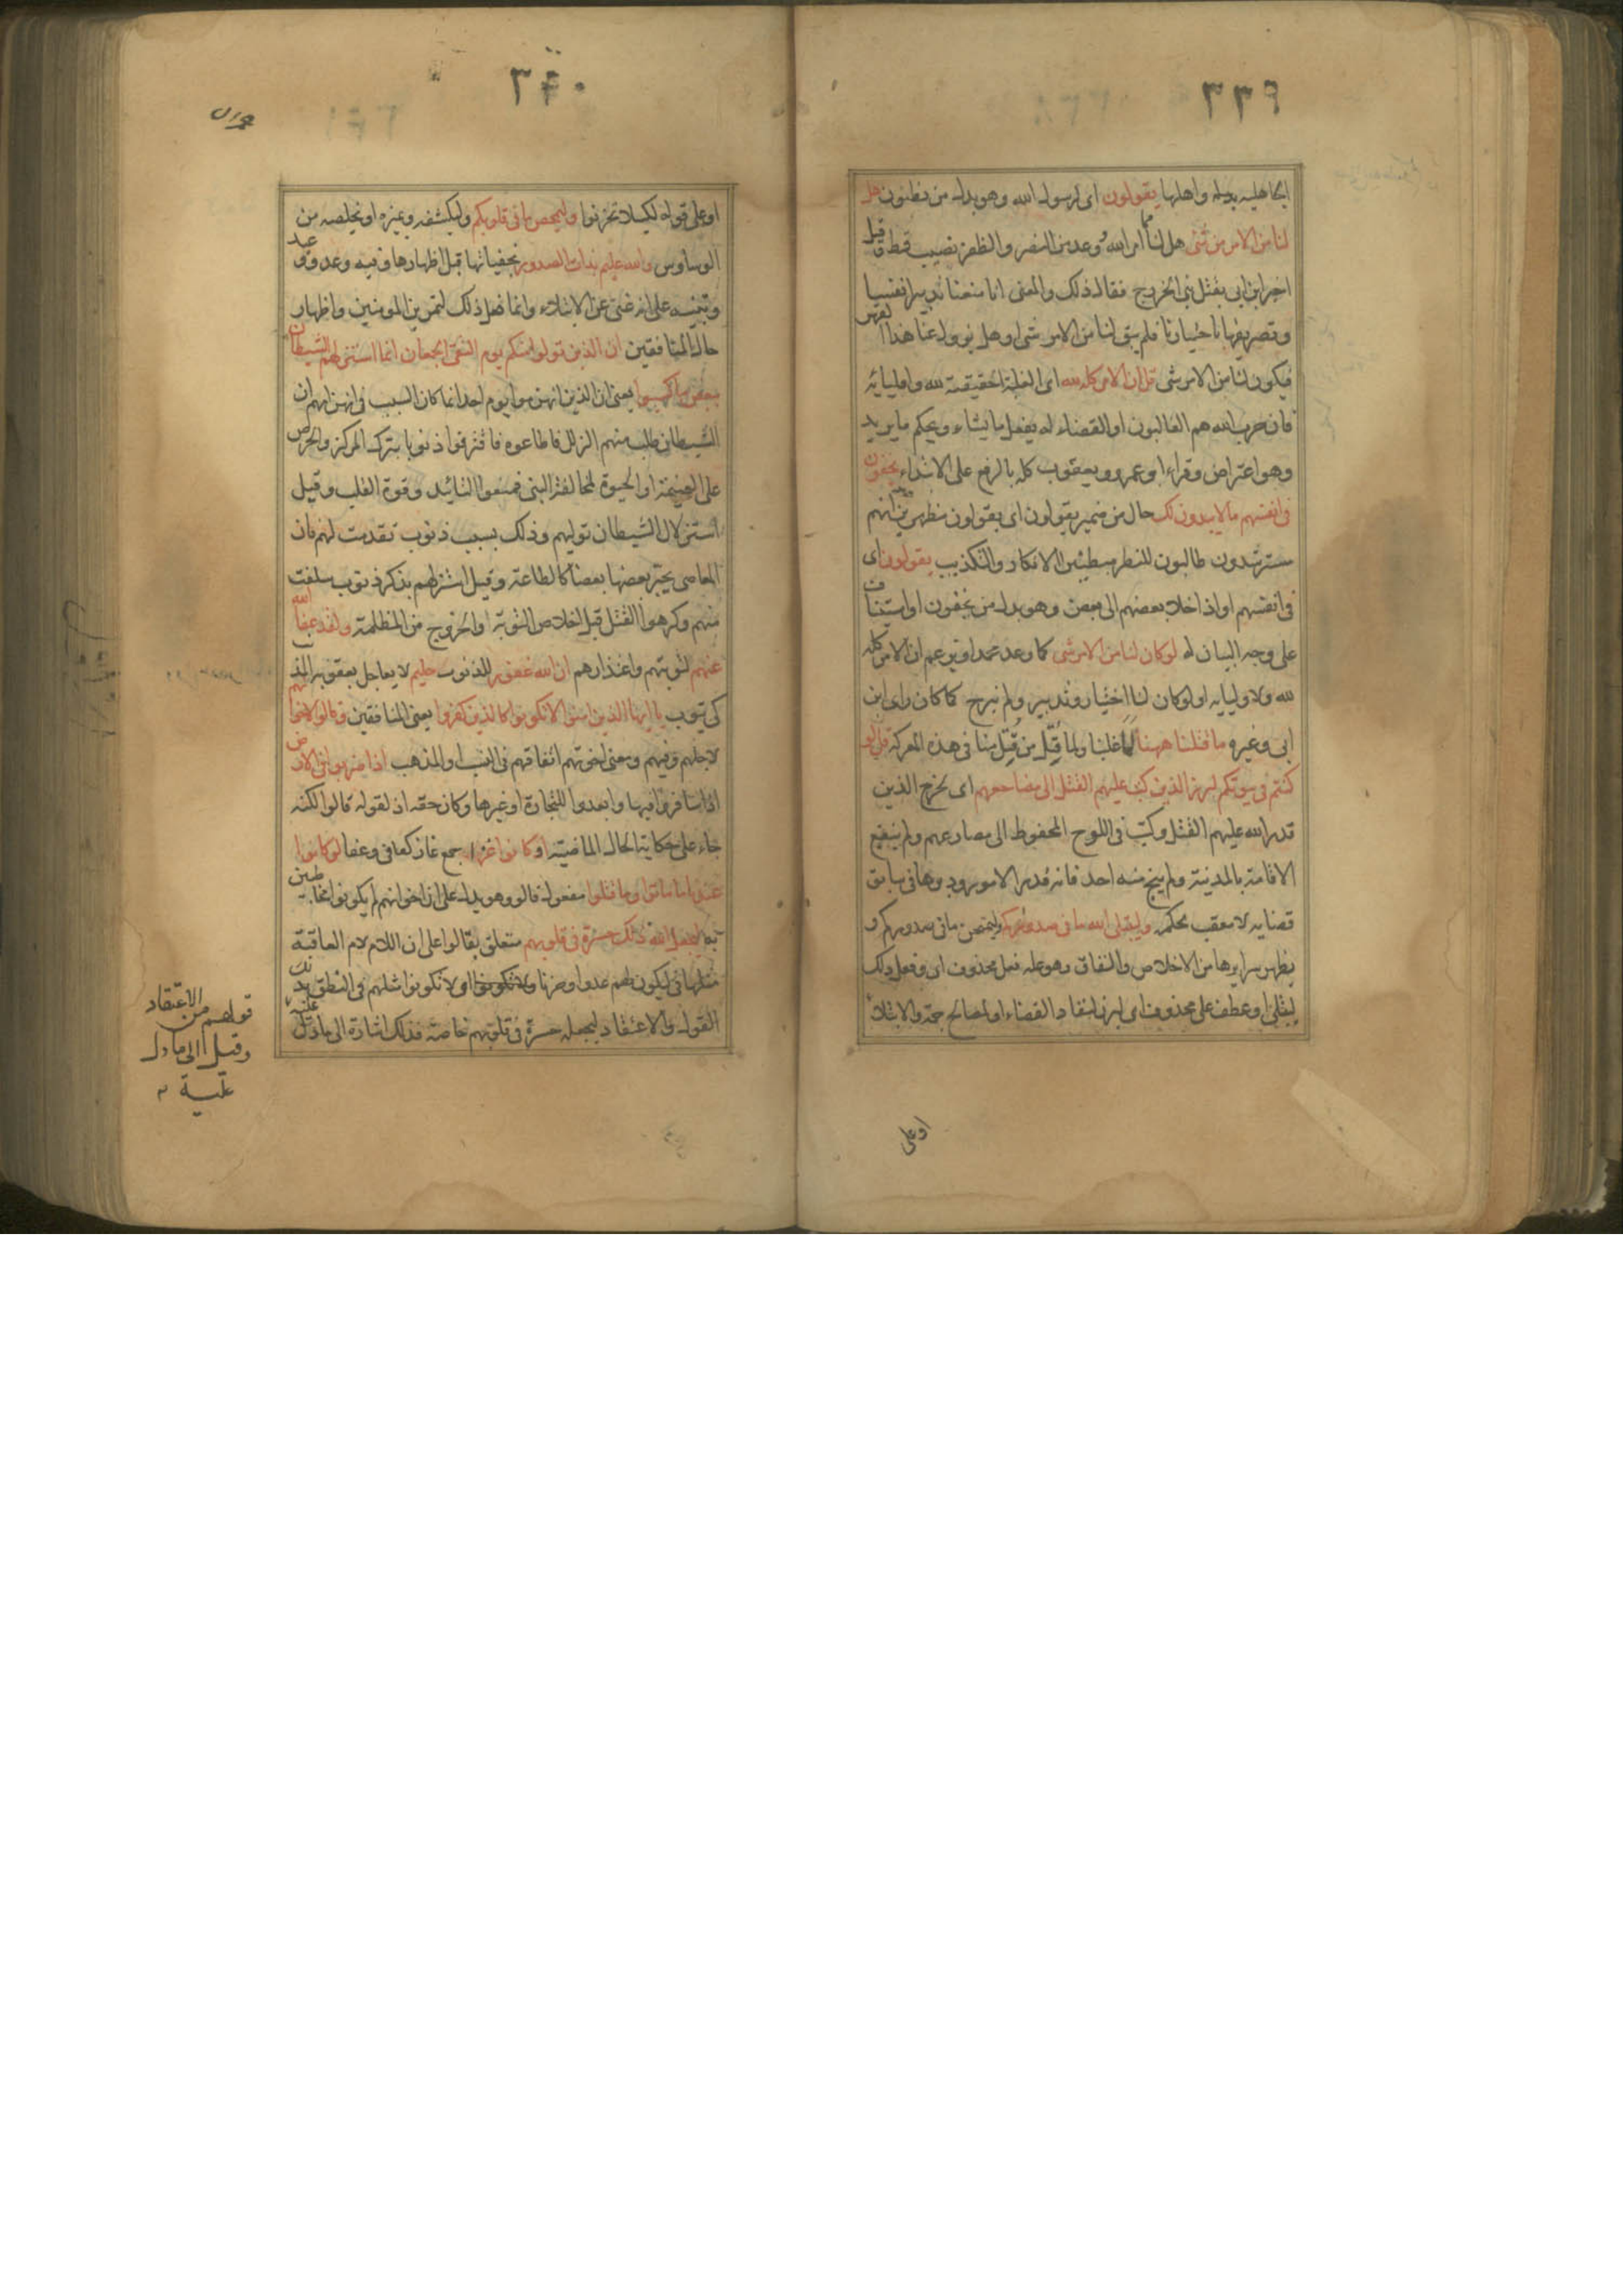 ٣٣٩
الجاهلية واهلها يقولون اى لرسول الله وهو بدل من يظنون هل
لنا من الامر من شئ هل لنا مما امر الله وعد من النصر والظفر نصيب قط وقيل
اخبر ابن ابى بقتل بنى الخزرج فقال ذلك والمعنى انا منعنا تدبير انفسنا
وتصريفها باختيارنا فلم يبق لنا من الامر شئ او هل يزول عنا هذا القهر
فيكون لنا من الامر شئ قل ان الامر كله لله اى الغلبة الحقيقية لله واوليائه
فان حزب الله هم الغالبون او القضاء له يفعل ما يشاء ويحكم ما يريد
وهو اعتراض وقراء ابو عمرو ويعقوب كله بالرفع على الابتداء يخفون
فى انفسهم ما لا يبدون لك حال من ضمير يقولون اى يقولون مظهرين انهم
مسترشدون طالبون للنصر مبطنين الانكار والتكذيب يقولون اى
فى انفسهم او اذا خلا بعضهم الى بعض وهو بدل من يخفون او استيناف
على وجه البيان له لو كان لنا من الامر شئ كما وعد محمد او زعم ان الامر كله
لله ولاوليايه او لو كان لنا اختيار وتدبير ولم نبرح كما كان راى ابن
ابى وغيره ما قتلنا ههنا لما غلبنا ولما قتل من قتل منا فى هذه المعركة قل لو
كنتم فى بيوتكم لبرز الذين كتب عليهم القتل الى مضاجعهم اى لخرج الذين
قدر الله عليهم القتل وكتب فى اللوح المحفوظ الى مصارعهم ولم ينفع
الاقامة بالمدينة ولم ينج منه احد فانه قدر الامور ودبرها فى سابق
قضايه لا معقب لحكمه وليبتلى الله ما فى صدوركم وليمتحن ما فى صدوركم و
يظهر سرايرها من الاخلاص والنفاق وهو علة فعل محذوف اى وفعل ذلك
ليبتلى او عطف على محذوف اى لبرز لنفاد القضاء او لمصالح جمة والابتلاء
او على
٣٤٠
او على قوله لكيلا تحزنوا وليمحص ما فى قلوبكم وليكشفه ويميزه او يخلصه من
الوساوس والله عليم بذات الصدور بخفياتها قبل اظهارها وفيه وعد ووعيد
وتنبيه على انه غنى عن الابتلاء وانما فعل ذلك لتمرين المومنين واظهار
حال المنافقين ان الذين تولوا منكم يوم التقى الجمعان انما استزلهم الشيطان
ببعض ما كسبوا يعنى ان الذين انهزموا يوم احد انما كان السبب فى انهزامهم ان
الشيطان طلب منهم الزلل فاطاعوه فاقترفوا ذنوبا بترك المركز والحرص
على الغنيمة او الحيوة لمخالفة النبى فمنعوا التائيد وقوة القلب وقيل
استزلال الشيطان توليهم وذلك بسبب ذنوب تقدمت لهم فان
المعاصى يجر بعضها بعضا كالطاعة وقيل استزلهم بذكر ذنوب سلفت
منهم وكرهوا القتل قبل اخلاص التوبة والخروج من المظلمة ولقد عفا الله
عنهم لتوبتهم واعتذارهم ان الله غفور للذنوب حليم لا يعاجل بعقوبة المذنب
كى يتوب يا ايها الذين امنوا لا تكونوا كالذين كفروا يعنى المنافقين وقالوا لاخوانهم
لاجلهم وفيهم ومعنى اخوتهم اتفاقهم فى النسب او المذهب اذا ضربوا فى الارض
اذا سافروا فيها وابعدوا للتجارة او غيرها وكان حقه اذ لقوله قالوا لكنه
جاء على حكاية الحال الماضية او كانوا غزا جمع غاز كعافى وعفا لو كانوا
عندنا ما ماتوا وما قتلوا مفعول قالوا وهو يدل على ان اخوانهم لم يكونوا مخاطبين
به ليجعل الله ذلك حسرة فى قلوبهم متعلق بقالوا على ان اللام لام العاقبة
مثلها فى ليكون لهم عدوا وحزنا ولا تكونوا اى لا تكونوا مثلهم فى النطق بذلك
القول والاعتقاد ليجعله حسرة فى قلوبهم خاصة فذلك اشارة الى ما دل عليه
قولهم من الاعتقاد
وقيل الى ما دل
عليه